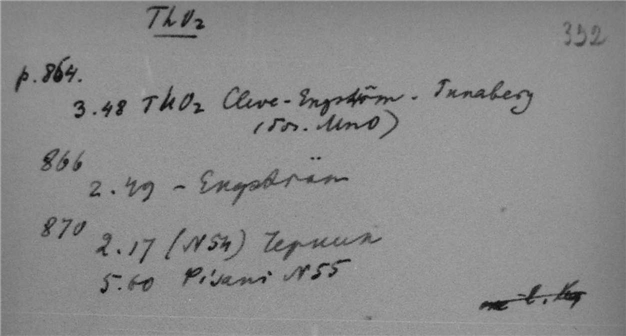 ThO₂
392
p. 864.
3.48 ThO₂ Cleve-Engström - Tunaberg
MnO)
866
2.49 - Engström
870
2.17 (N54) Черник
5.60 Pisani N55